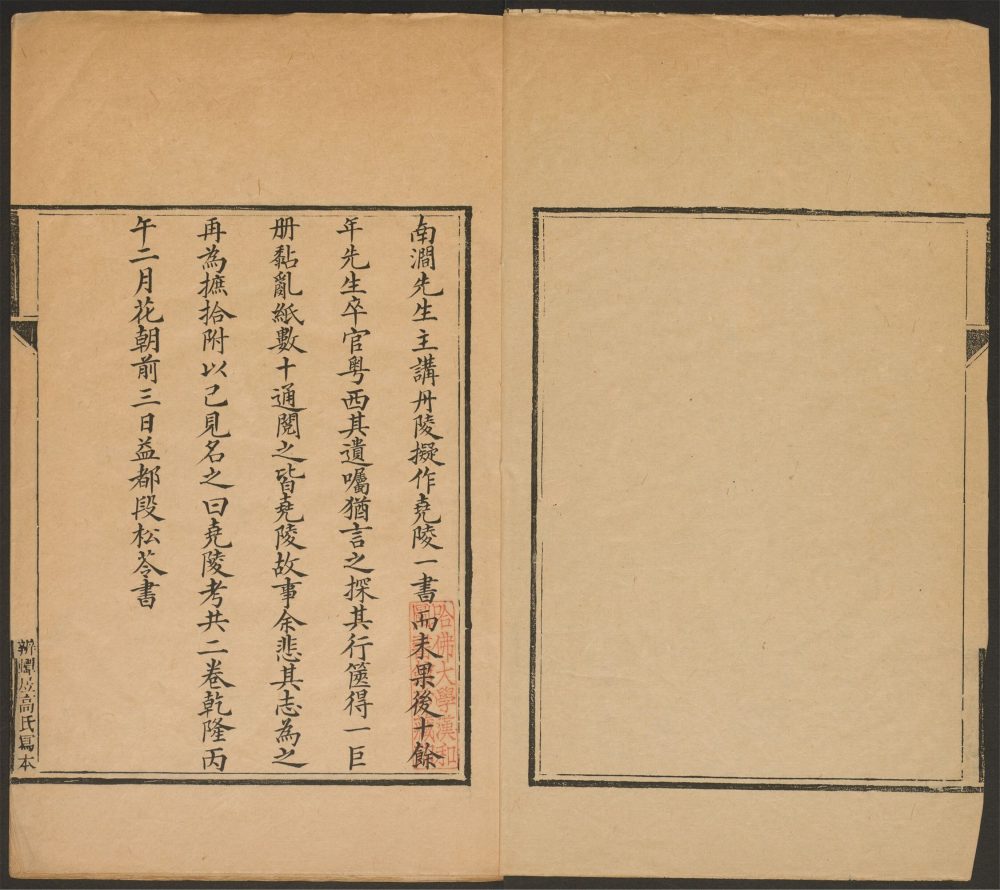 南澗先生主講丹陵擬作堯陵一書而未果後十餘
年先生卒官粤西其遺囑猶言之探其行篋得一巨
册黏亂紙數十通閱之皆堯陵故事余悲其志為之
再為摭拾附以己見名之曰堯陵考共二卷乾隆丙
午二月花朝前三日益都段松苓書
哈佛大學漢和
圖書館
辨蟫居高氏寫本